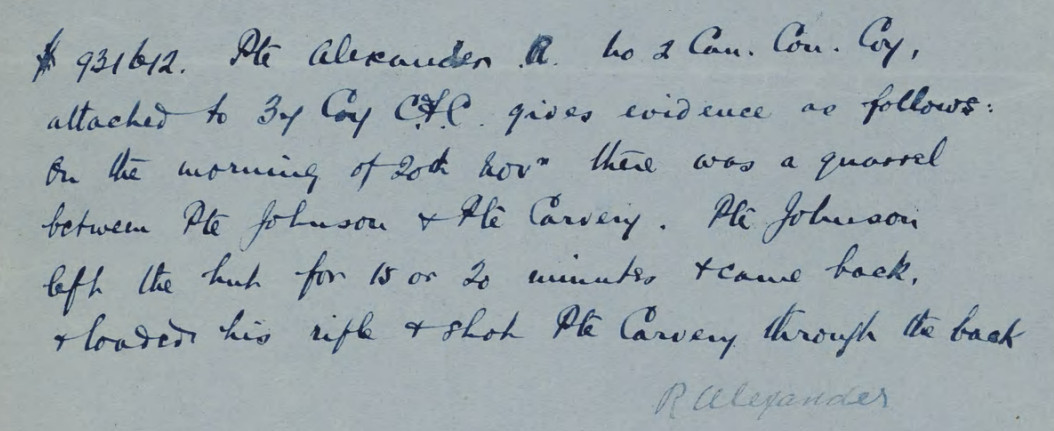 # 931612. Pte Alexander R. No 2 Can. Con. Coy,
attached to 37 Coy C.F.C. gives evidence as follows:
On the morning of 20th Novr there was a quarrel
between Pte Johnson & Pte Carvery. Pte Johnson
left the hut for 15 or 20 minutes & came back,
& loaded his rifle & shot Pte Carvery through the back
R Alexander